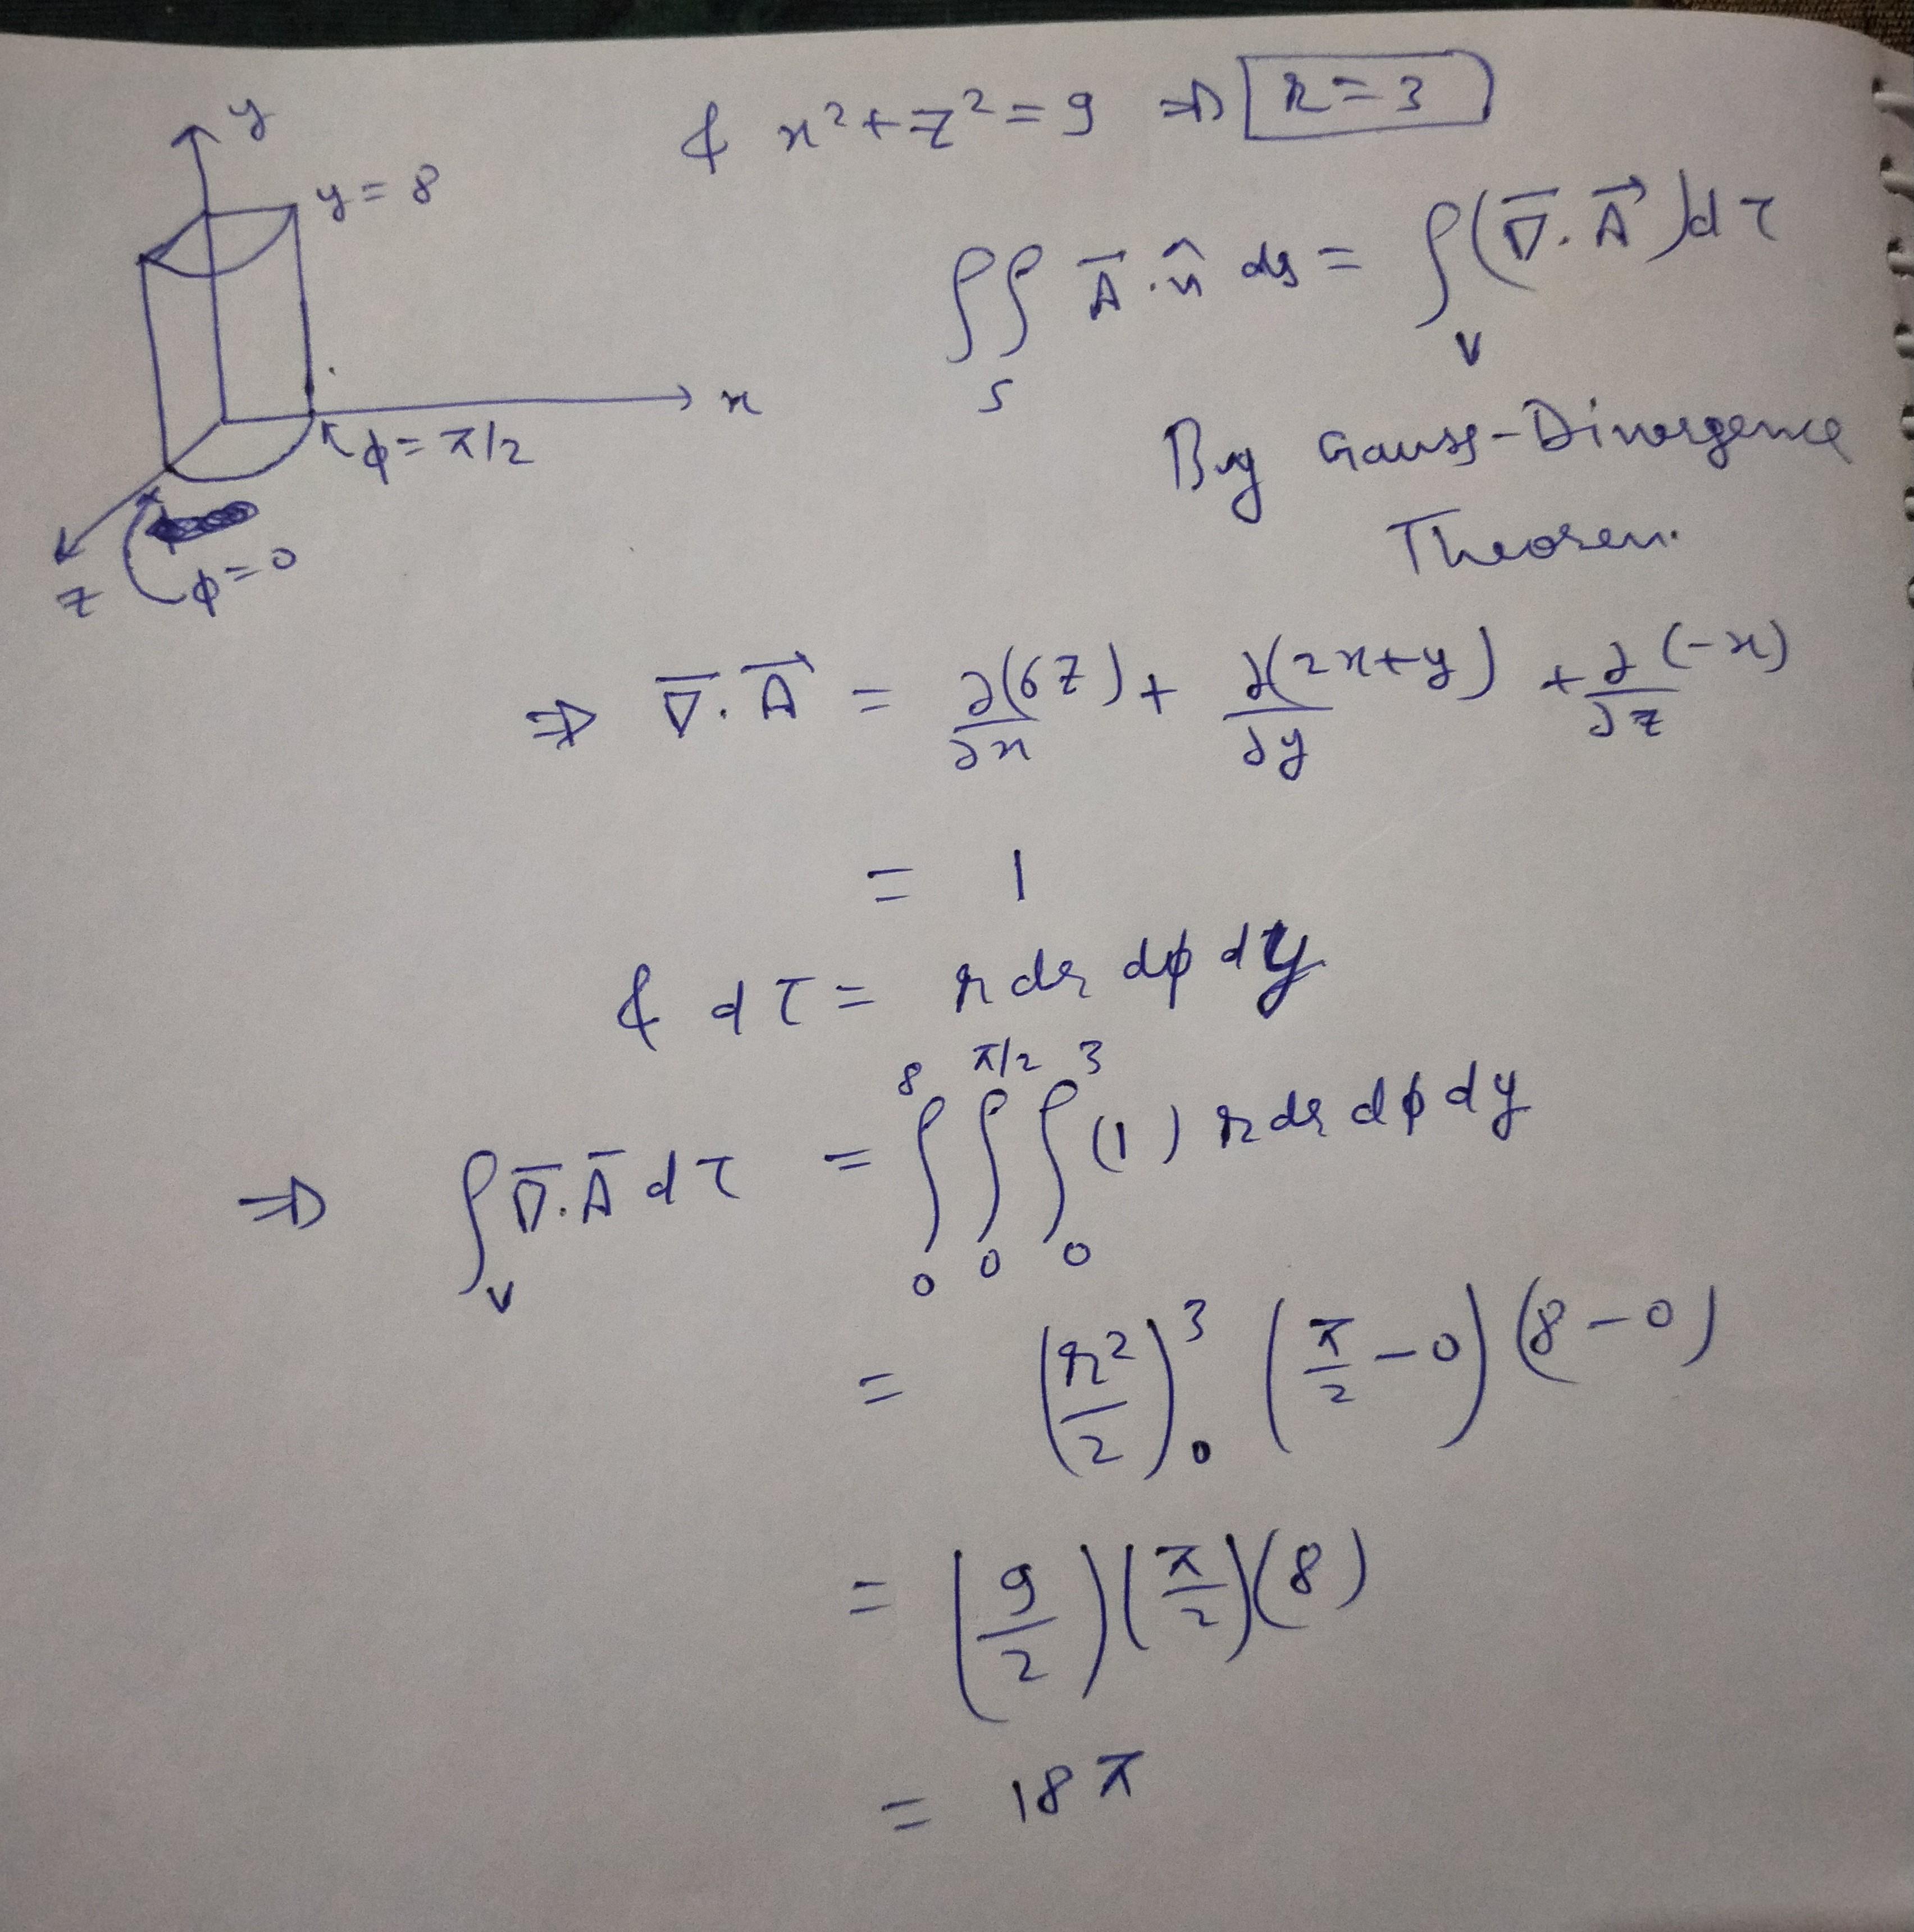 y
y = 8
& x² + z² = 9 ⇒ r = 3
∫∫_S A̅ . n̂ ds = ∫_V (∇̅ . A⃗) dτ
x
ϕ = π/2
z
ϕ = 0
By Gauss-Divergence
Theorem.
⇒ ∇̅ . A⃗ = ∂(6z)/∂x + ∂(2x+y)/∂y + ∂(-x)/∂z
= 1
& dτ = r dr dϕ dy
⇒ ∫_V ∇̅ . A̅ dτ = ∫₀⁸ ∫₀^{π/2} ∫₀³ (1) r dr dϕ dy
= (r²/2)₀³ (π/2 - 0) (8 - 0)
= (9/2) (π/2) (8)
= 18 π